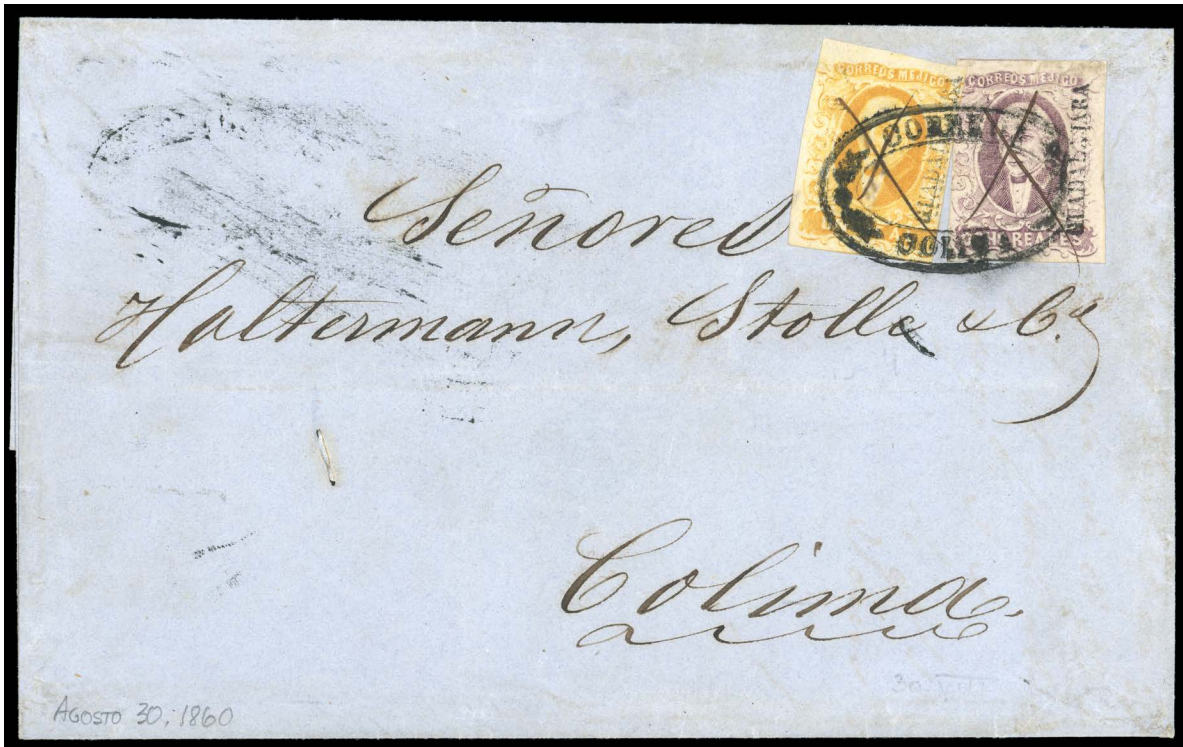 CORREOS MEJICO
CORREOS MEJICO
GUADALAJARA
COLIMA
Señores
Haltermann, Stolle & Cª
Colima.
AGOSTO 30, 1860